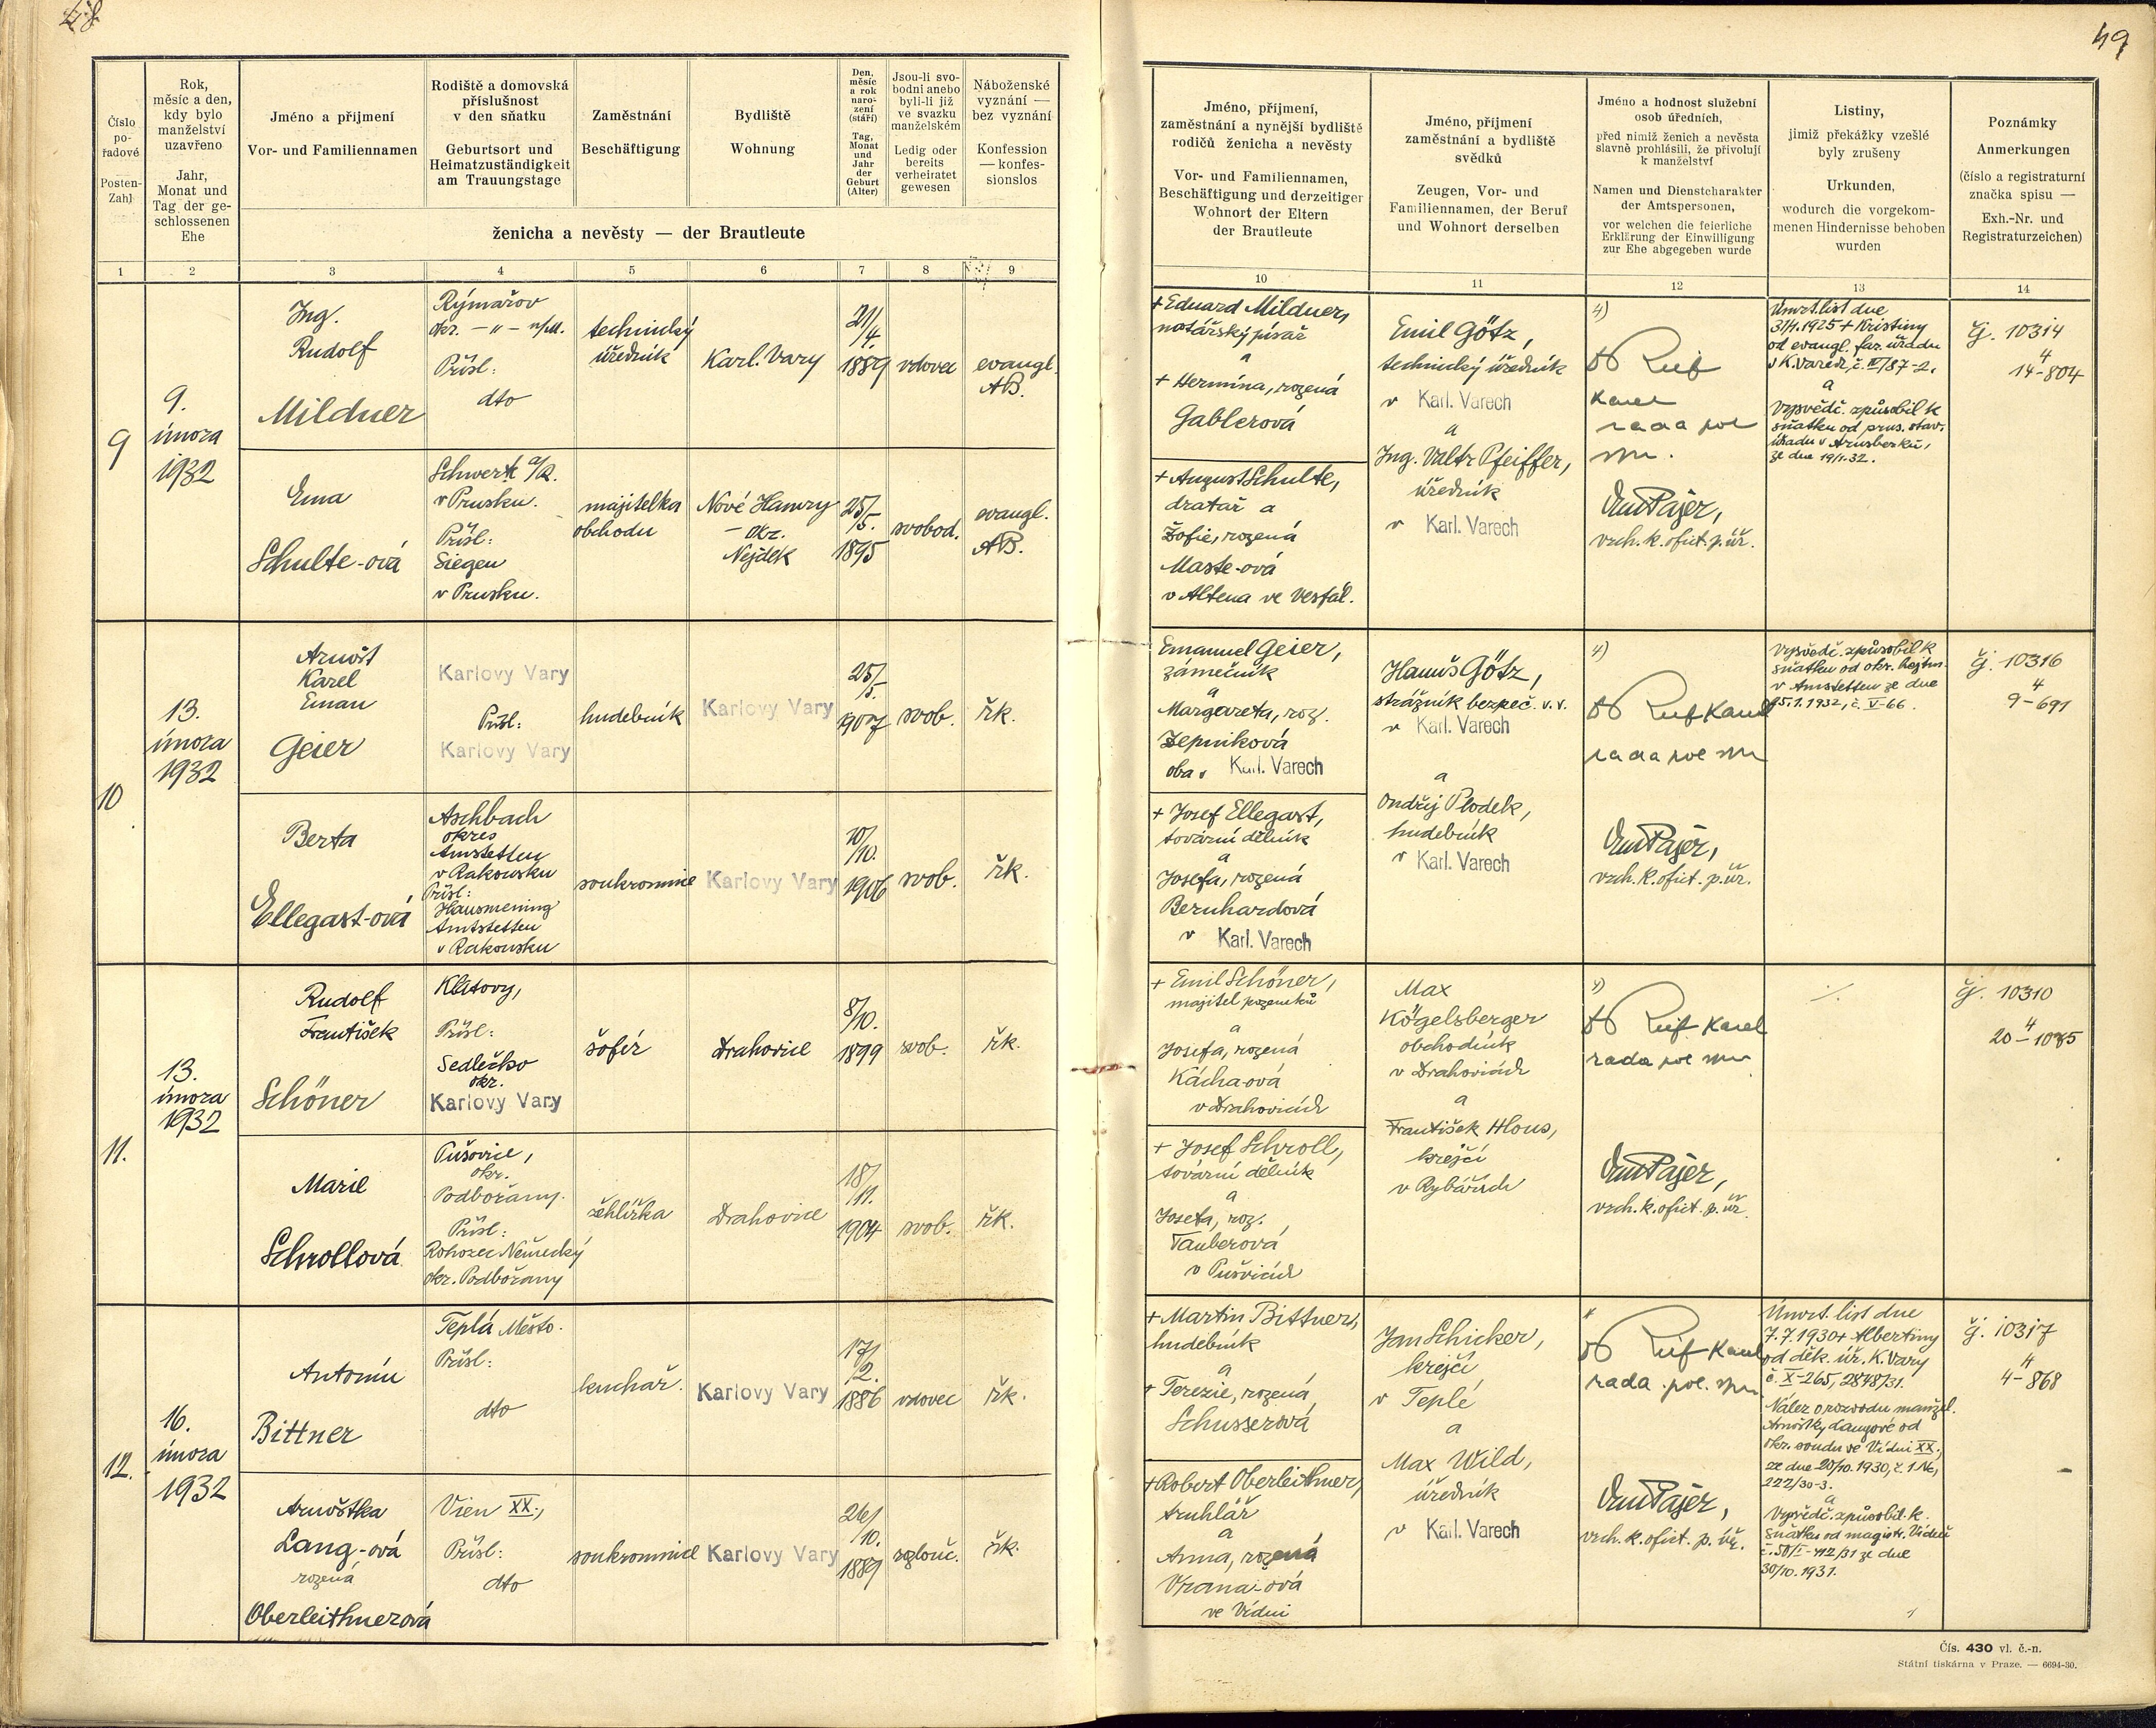 48
49
Číslo
po-
řadové
Posten-
Zahl
Rok,
měsíc a den,
kdy bylo
manželství
uzavřeno
Jahr,
Monat und
Tag der ge-
schlossenen
Ehe
Jméno a příjmení
Vor- und Familiennamen
Rodiště a domovská
příslušnost
v den sňatku
Geburtsort und
Heimatzuständigkeit
am Trauungstage
Zaměstnání
Beschäftigung
Bydliště
Wohnung
Den,
měsíc
a rok
naro-
zení
(stáří)
Tag,
Monat
und
Jahr
der
Geburt
(Alter)
Jsou-li svo-
bodni anebo
byli-li již
ve svazku
manželském
Ledig oder
bereits
verheiratet
gewesen
Náboženské
vyznání —
bez vyznání
Konfession
— konfes-
sionslos
ženicha a nevěsty — der Brautleute
1 2 3 4 5 6 7 8 9
9
9.
února
1932
Ing.
Rudolf
Mildner
Rýmařov
okr. — " — n/M.
Přísl:
dto
technický
úředník
Karl. Vary
21/
/4.
1889
vdovec
evangl.
AB.
Ema
Schulte-ová
Schwerte a/R.
v Prusku.
Přísl:
Siegen
v Prusku.
majitelka
obchodu
Nové Hamry
— okr.
Nejdek
25/
/5.
1895
svobod.
evangl.
AB.
10
13.
února
1932
Arnošt
Karel
Eman
Geier
Karlovy Vary
Přísl:
Karlovy Vary
hudebník
Karlovy Vary
25/
/5.
1907
svob.
řk.
Berta
Ellegast-ová
Aschbach
okres
Amstetten
v Rakousku
Přísl:
Hausmening
Amtstetten
v Rakousku
soukromnice
Karlovy Vary
10/
/10.
1906
svob.
řk.
11.
13.
února
1932
Rudolf
František
Schöner
Klatovy,
Přísl:
Sedlečko
okr.
Karlovy Vary
šofér
Drahovice
8/
/10.
1899
svob.
řk.
Marie
Schrollová
Pušovice,
okr.
Podbořany.
Přísl:
Rohozec Německý
okr. Podbořany
žehlířka
Drahovice
18/
/11.
1904
svob.
řk.
12.
16.
února
1932
Antonín
Bittner
Teplá Město.
Přísl:
dto
kuchař.
Karlovy Vary
17/
/2.
1886
vdovec
řk.
Arnoštka
Lang-ová
rozená
Oberleithnerová
Vien XX.,
Přísl:
dto
soukromnice
Karlovy Vary
26/
/10.
1889
rozlouč.
řk.
Jméno, příjmení,
zaměstnání a nynější bydliště
rodičů ženicha a nevěsty
Vor- und Familiennamen,
Beschäftigung und derzeitiger
Wohnort der Eltern
der Brautleute
Jméno, příjmení
zaměstnání a bydliště
svědků
Zeugen, Vor- und
Familiennamen, der Beruf
und Wohnort derselben
Jméno a hodnost služební
osob úředních,
před nimiž ženich a nevěsta
slavně prohlásili, že přivolují
k manželství
Namen und Dienstcharakter
der Amtspersonen,
vor welchen die feierliche
Erklärung der Einwilligung
zur Ehe abgegeben wurde
Listiny,
jimiž překážky vzešlé
byly zrušeny
Urkunden,
wodurch die vorgekom-
menen Hindernisse behoben
wurden
Poznámky
Anmerkungen
(číslo a registraturní
značka spisu —
Exh.-Nr. und
Registraturzeichen)
10 11 12 13 14
+ Eduard Mildner,
notářský písař
a
+ Hermína, rozená
Gablerová
+ August Schulte,
dratař a
Žofie, rozená
Maste-ová
v Altena ve Vestfál.
Emil Götz,
technický úředník
v Karl. Varech
a
Ing. Valtr Pfeiffer,
úředník
v Karl. Varech
4)
Karel
rada pol
Pajer,
vrch. k. ofict. p. úř.
Úmrt. list dne
31/1.1925 + Kristiny
od evangl. far. úřadu
v K. Varech, č. III/87-2.
a
vysvědč. způsobil. k
sňatku od prus. stav.
úřadu v Arnsberku,
ze dne 19/1.32.
Čj. 10314
4
14-804
Emanuel Geier,
zámečník
a
Margareta, roz.
Zepniková
oba v Karl. Varech
+ Josef Ellegast,
tovární dělník
a
Josefa, rozená
Bernhardová
v Karl. Varech
Hanuš Götz,
strážník bezpeč. v. v.
v Karl. Varech
a
Ondřej Plodek,
hudebník
v Karl. Varech
4)
Karel
rada pol
Pajer,
vrch. k. ofict. p. úř.
vysvědč. způsobil k
sňatku od okr. hejtm.
v Amstetten ze dne
15.1.1932, č. V-66.
Čj. 10316
4
9-691
+ Emil Schöner,
majitel pozemků
a
Josefa, rozená
Kácha-ová
v Drahovicích
+ Josef Schroll,
tovární dělník
a
Josefa, roz.
Tauberová
v Pušovicích
Max
Kögelsberger
obchodník
v Drahovicích
a
František Hlous,
krejčí
v Rybářích
Karel
rada pol
Pajer,
vrch. k. ofict. p. úř.
./.
Čj. 10310
4
20-1085
+ Martin Bittner,
hudebník
a
+ Terezie, rozená
Schusserová
+ Robert Oberleithner,
truhlář
a
Anna, rozená
Vrana-ová
ve Vídni
Jan Schicker,
krejčí
v Teplé
a
Max Wild,
úředník
v Karl. Varech
Karel
rada pol.
Pajer,
vrch. k. ofict. p. úř.
Úmrt. list dne
7.7.1930 + Albertiny
od děk. úř. K. Vary
č. X-265, 2848/31.
Nález o rozvodu manžel.
Arnoštky Langové od
okr. soudu ve Vídni XX.,
ze dne 20/10.1930, č. 1 Nc,
222/30-3.
a
Vysvědč. způsobil. k
sňatku od magistr. Vídeň
č. 50/I-412/31 ze dne
30/10.1931.
Čj. 10317
4
4-868
Čís. 430 vl. č.-n.
Státní tiskárna v Praze. — 6694-30.